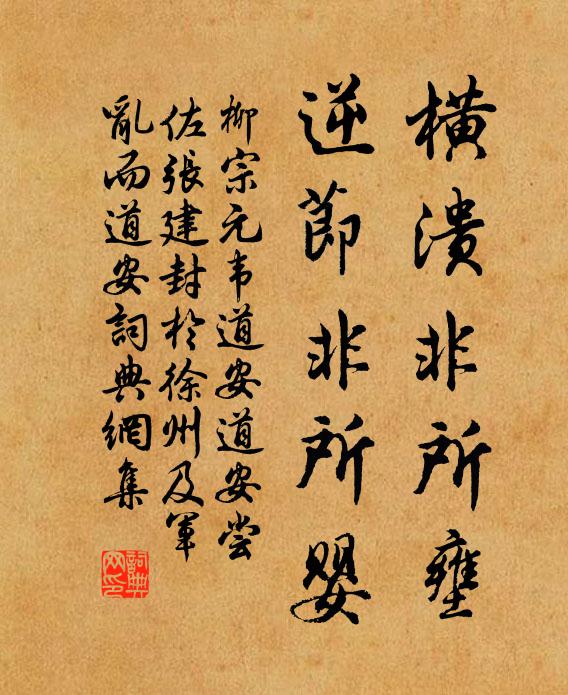 橫潰非所壅
逆節非所嬰
柳宗元韦道安道安尝
佐張建封於徐州及軍
亂而道安詞典網集
詞典网印